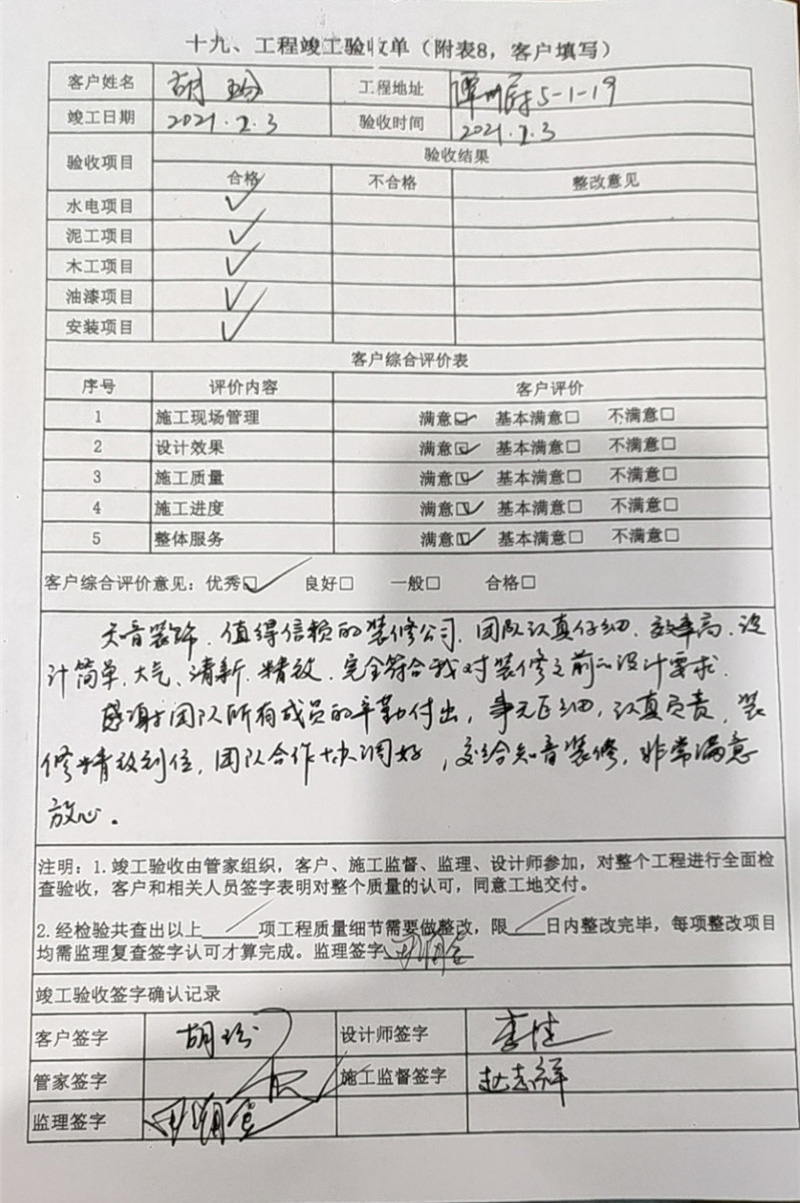 十九、工程竣工验收单（附表8，客户填写）
客户姓名 胡玢 工程地址 潭州府5-1-19
竣工日期 2021.2.3 验收时间 2021.2.3
验收项目 验收结果
合格 不合格 整改意见
水电项目 ✓
泥工项目 ✓
木工项目 ✓
油漆项目 ✓
安装项目 ✓
客户综合评价表
序号 评价内容 客户评价
1 施工现场管理 满意☑ 基本满意□ 不满意□
2 设计效果 满意☑ 基本满意□ 不满意□
3 施工质量 满意☑ 基本满意□ 不满意□
4 施工进度 满意☑ 基本满意□ 不满意□
5 整体服务 满意☑ 基本满意□ 不满意□
客户综合评价意见：优秀☑ 良好□ 一般□ 合格□
音装饰，值得信赖的装修公司，团队认真仔细，效率高，设
计简单、大气、清新、精致，完全符合我对装修之前的设计要求。
感谢团队所有成员的辛勤付出，事无巨细，认真负责，装
修精致到位，团队合作协调好，交给知音装修，非常满意
放心。
注明：1.竣工验收由管家组织，客户、施工监督、监理、设计师参加，对整个工程进行全面检
查验收，客户和相关人员签字表明对整个质量的认可，同意工地交付。
2.经检验共查出以上 / 项工程质量细节需要做整改，限 / 日内整改完毕，每项整改项目
均需监理复查签字认可才算完成。监理签字
竣工验收签字确认记录
客户签字 胡玢 设计师签字 李佳
管家签字 施工监督签字 赵志祥
监理签字